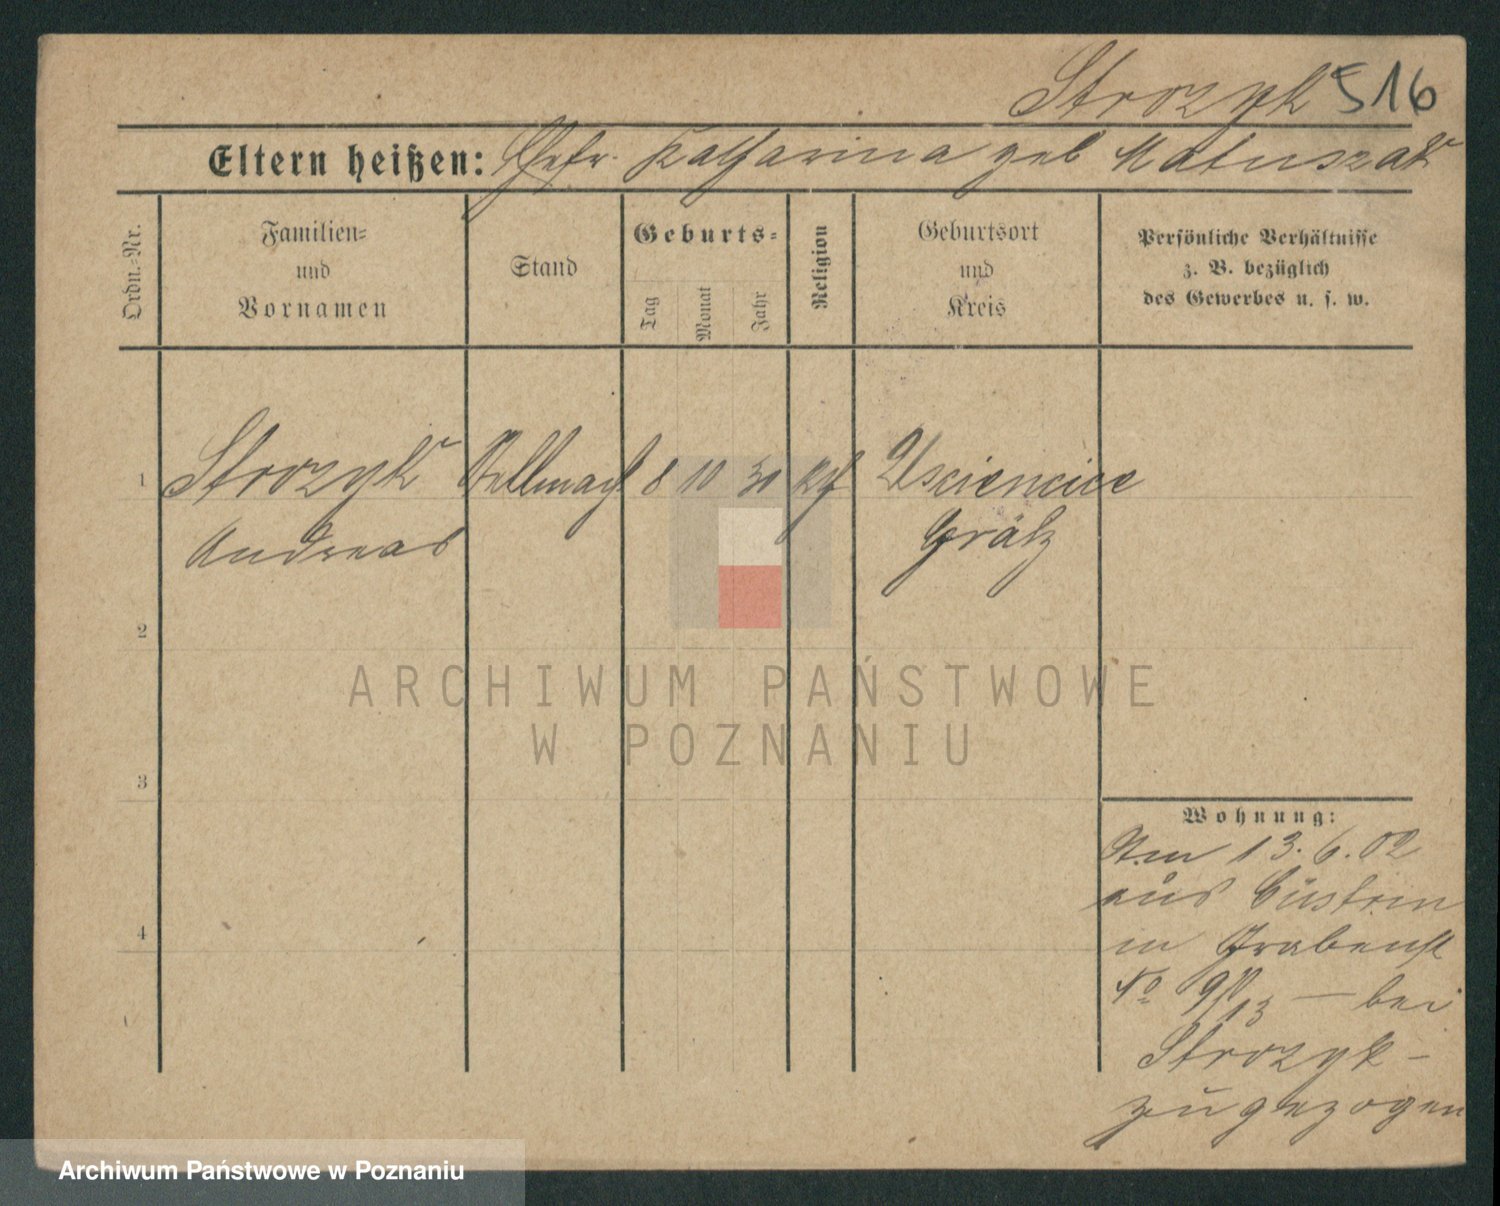 Strozyk 516
Eltern heißen: Ehefr. Katharina geb Matuszak
Ordn.=Nr.
Familien=
und
Vornamen
Stand
Geburts=
Tag
Monat
Jahr
Religion
Geburtsort
und
Kreis
Persönliche Verhältnisse
z. B. bezüglich
des Gewerbes u. s. w.
1 Strozyk Stellmach 8 10 30 kth Usciencice
Andreas Grätz
2
3
4
ARCHIWUM PAŃSTWOWE
W POZNANIU
Wohnung:
Am 13.6.02
aus Cüstrin
in Grabenst
No 9/13 — bei
Strozyk -
zugezogen
Archiwum Państwowe w Poznaniu